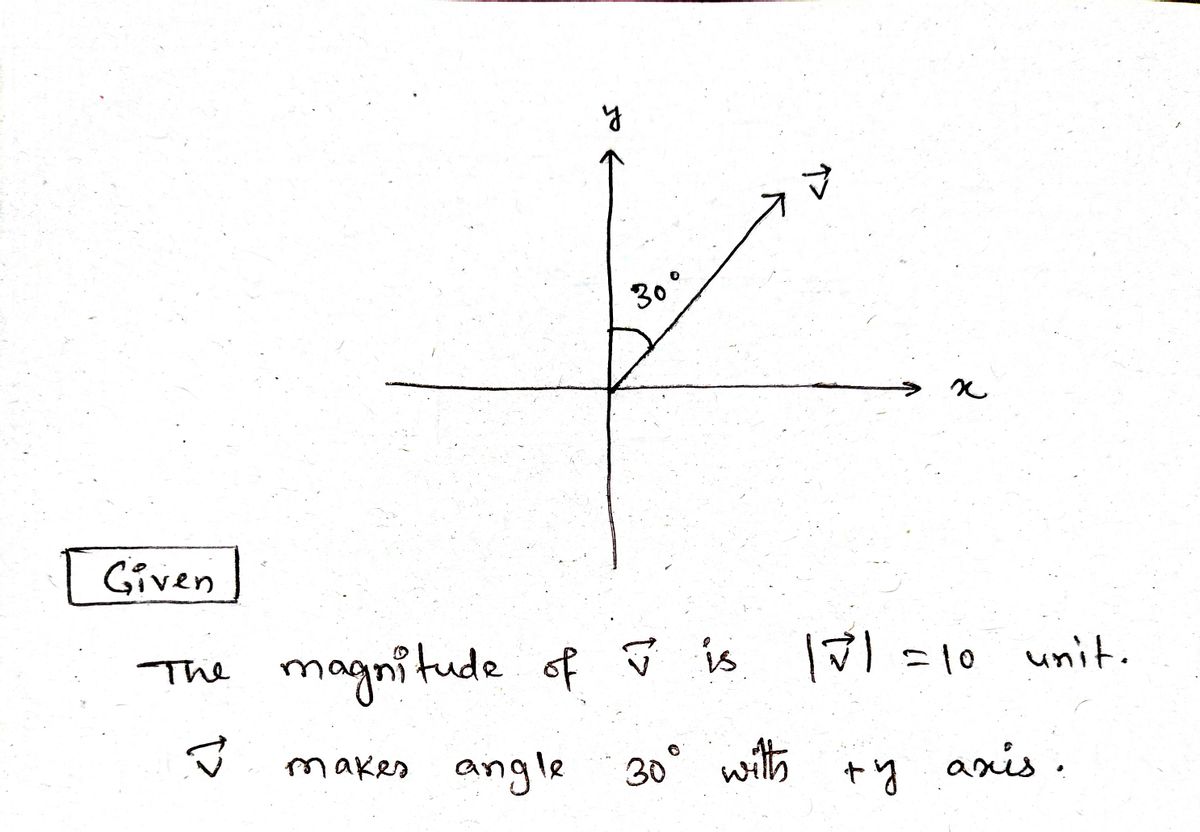 y
v⃗
30°
x
Given
The magnitude of v⃗ is |v⃗| = 10 unit.
v⃗ makes angle 30° with +y axis.